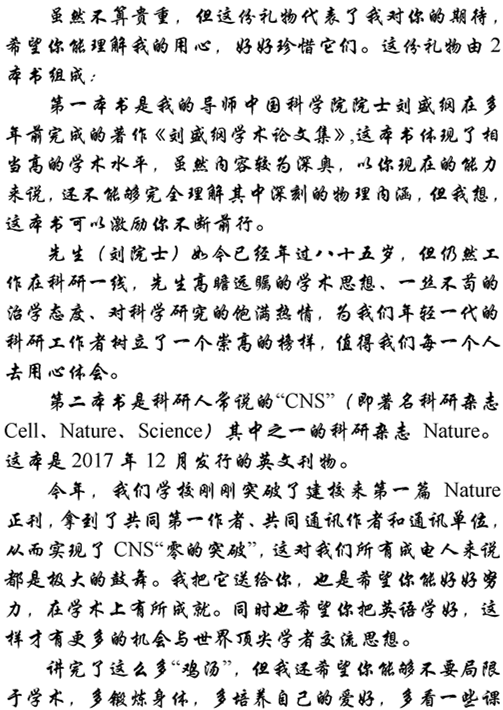 虽然不算贵重，但这份礼物代表了我对你的期待，
希望你能理解我的用心，好好珍惜它们。这份礼物由 2
本书组成：
第一本书是我的导师中国科学院院士刘盛纲在多
年前完成的著作《刘盛纲学术论文集》,这本书体现了相
当高的学术水平，虽然内容较为深奥，以你现在的能力
来说，还不能够完全理解其中深刻的物理内涵，但我想，
这本书可以激励你不断前行。
先生（刘院士）如今已经年过八十五岁，但仍然工
作在科研一线，先生高瞻远瞩的学术思想、一丝不苟的
治学态度、对科学研究的饱满热情，为我们年轻一代的
科研工作者树立了一个崇高的榜样，值得我们每一个人
去用心体会。
第二本书是科研人常说的“CNS”（即著名科研杂志
Cell、Nature、Science）其中之一的科研杂志 Nature。
这本是 2017 年 12 月发行的英文刊物。
今年，我们学校刚刚突破了建校来第一篇 Nature
正刊，拿到了共同第一作者、共同通讯作者和通讯单位，
从而实现了 CNS“零的突破”，这对我们所有成电人来说
都是极大的鼓舞。我把它送给你，也是希望你能好好努
力，在学术上有所成就。同时也希望你把英语学好，这
样才有更多的机会与世界顶尖学者交流思想。
讲完了这么多“鸡汤”，但我还希望你能够不要局限
于学术，多锻炼身体，多培养自己的爱好，多看一些课